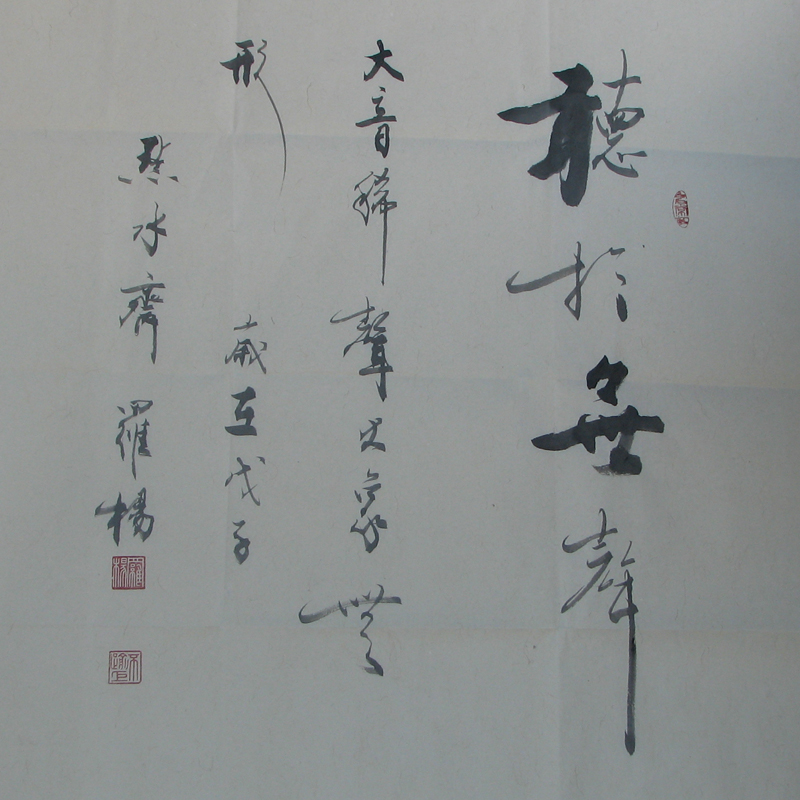 聽於無聲
大音稀聲大象無
形 歲在戊子
點水齋羅楊
羅楊